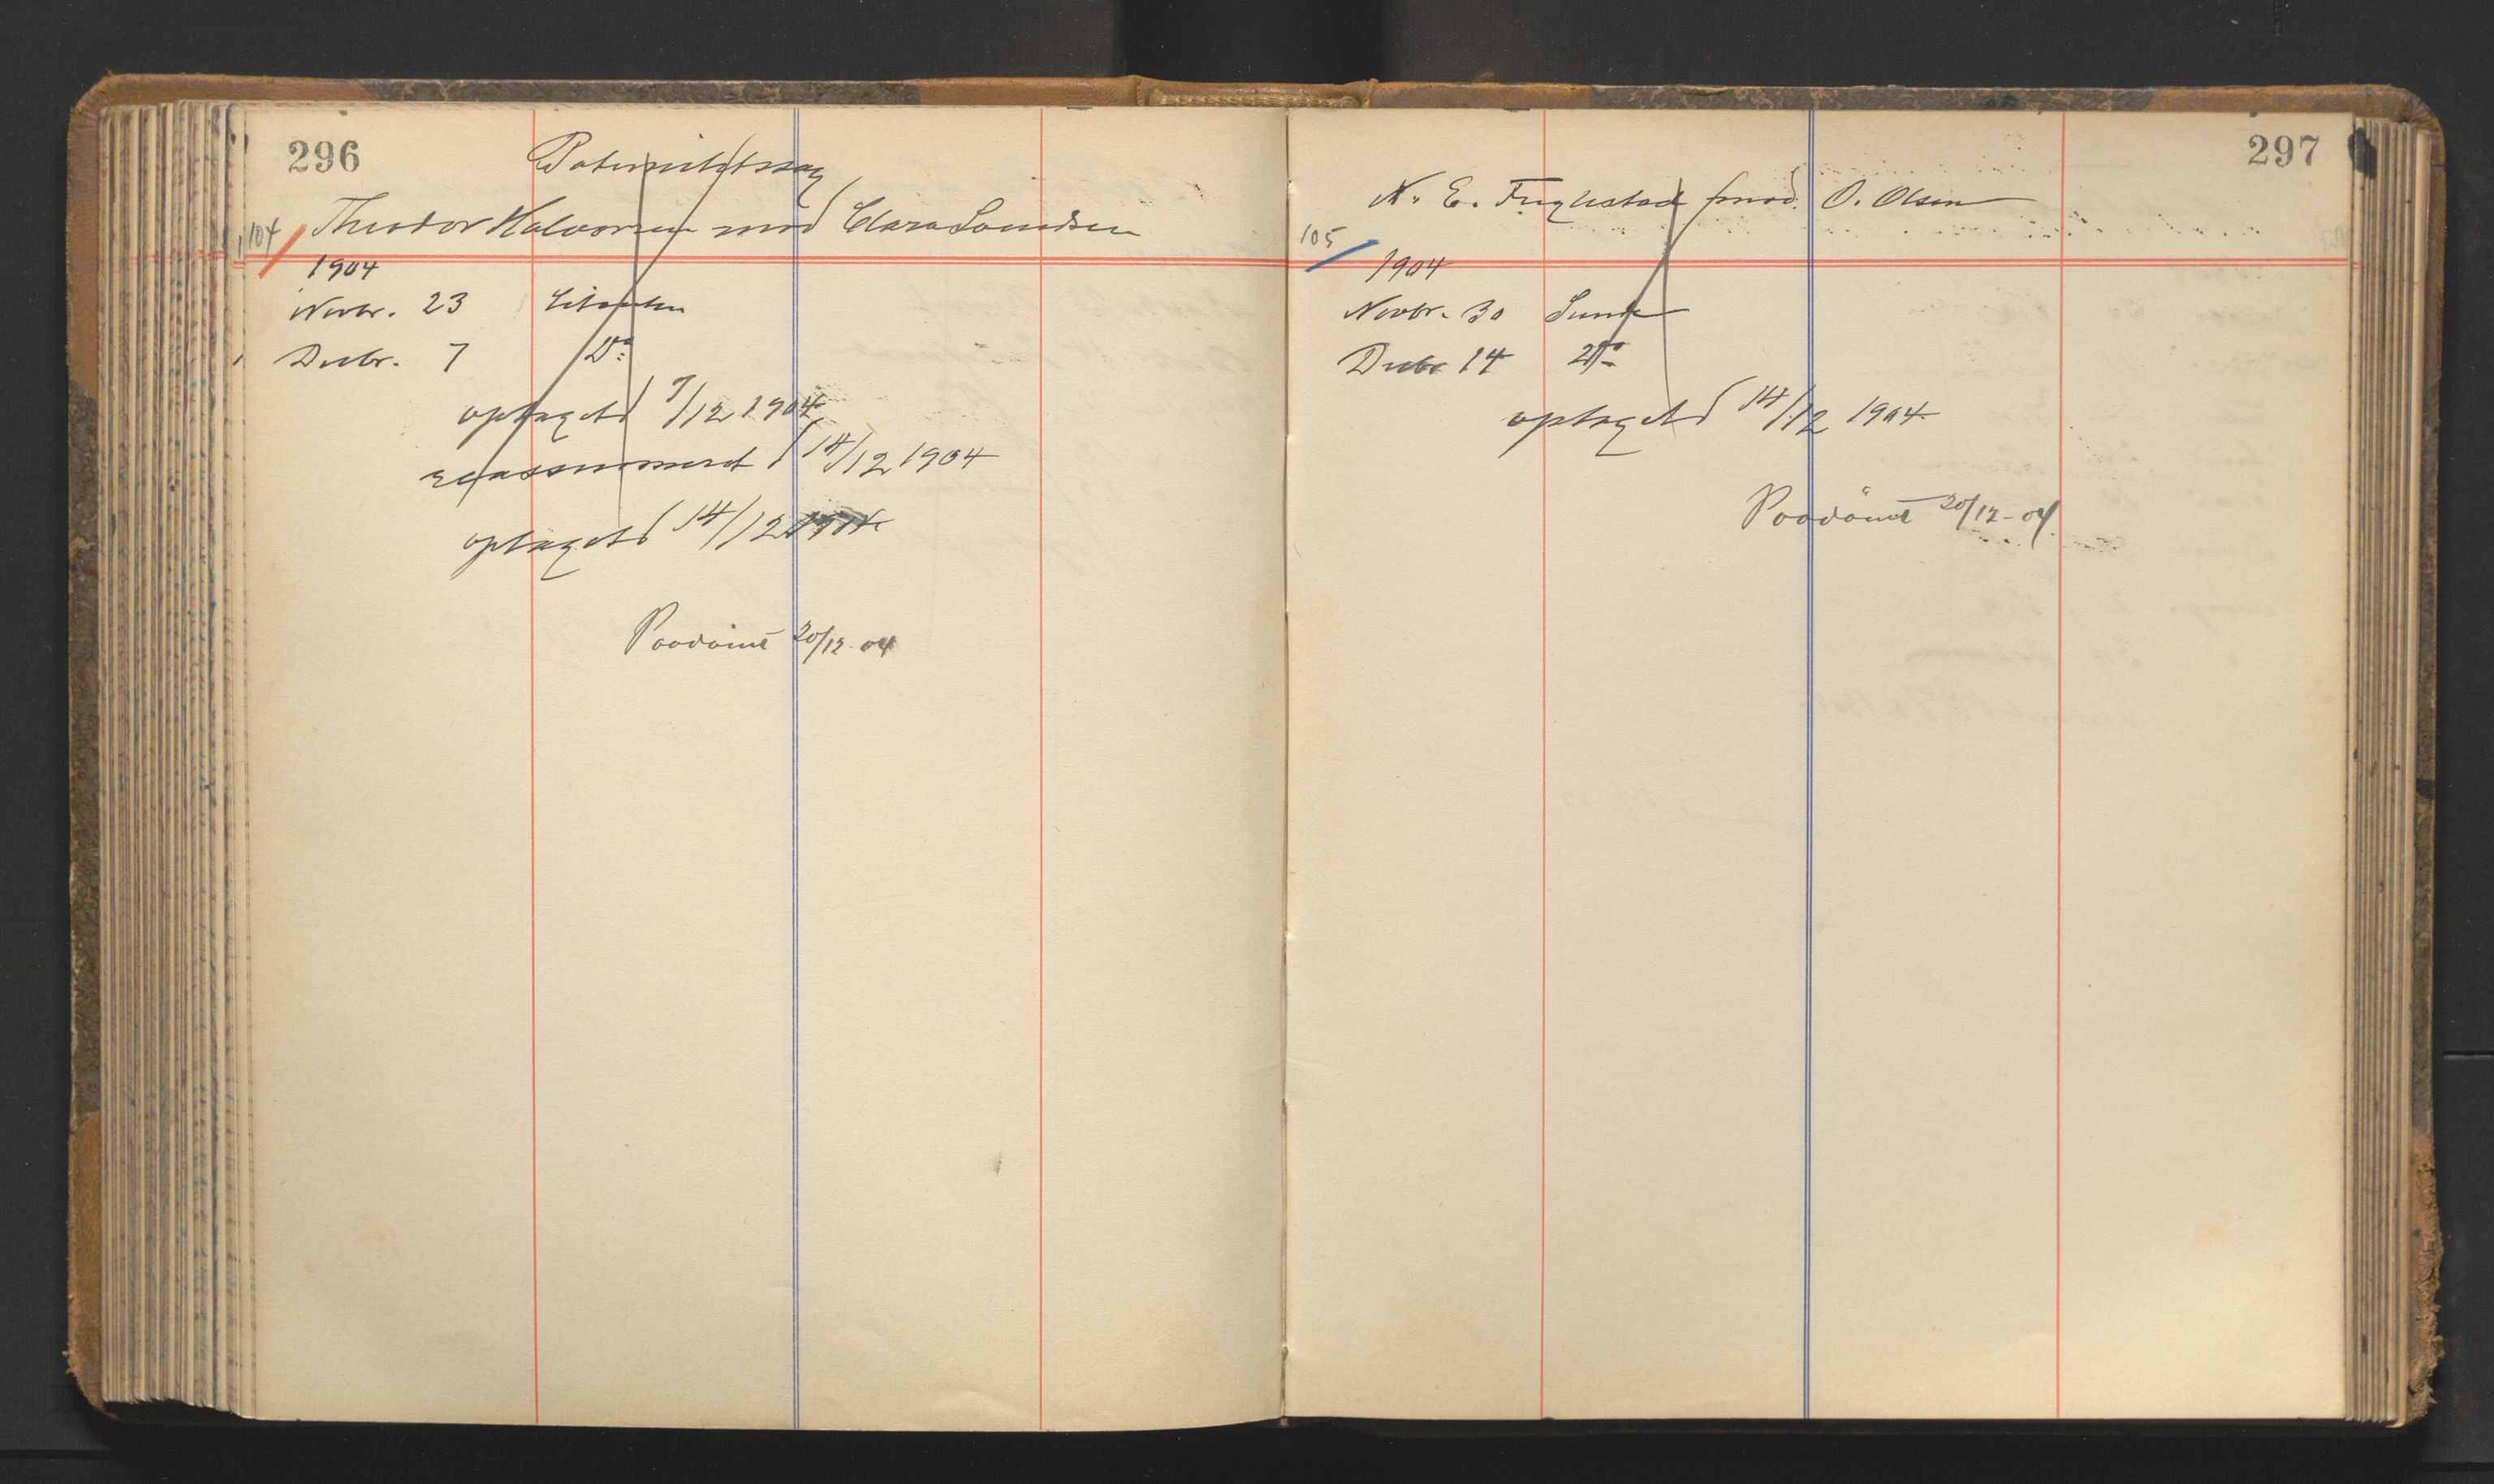 296
Paternitetssag
104 Theodor Halvorsen mod Clara Lauridsen
1904
Novbr. 23 Citanten
Decbr. 7 Do
optaget d 7/12 1904
reassumeret d 14/12 1904
optaget d 14/12 1904
Paadömt 20/12-04
297
N. E. Fuglestad mod. O. Olsen
105
1904
Novbr. 30 Sunde
Decbr 14 Do
optaget d 14/12 1904
Paadömt 20/12-04